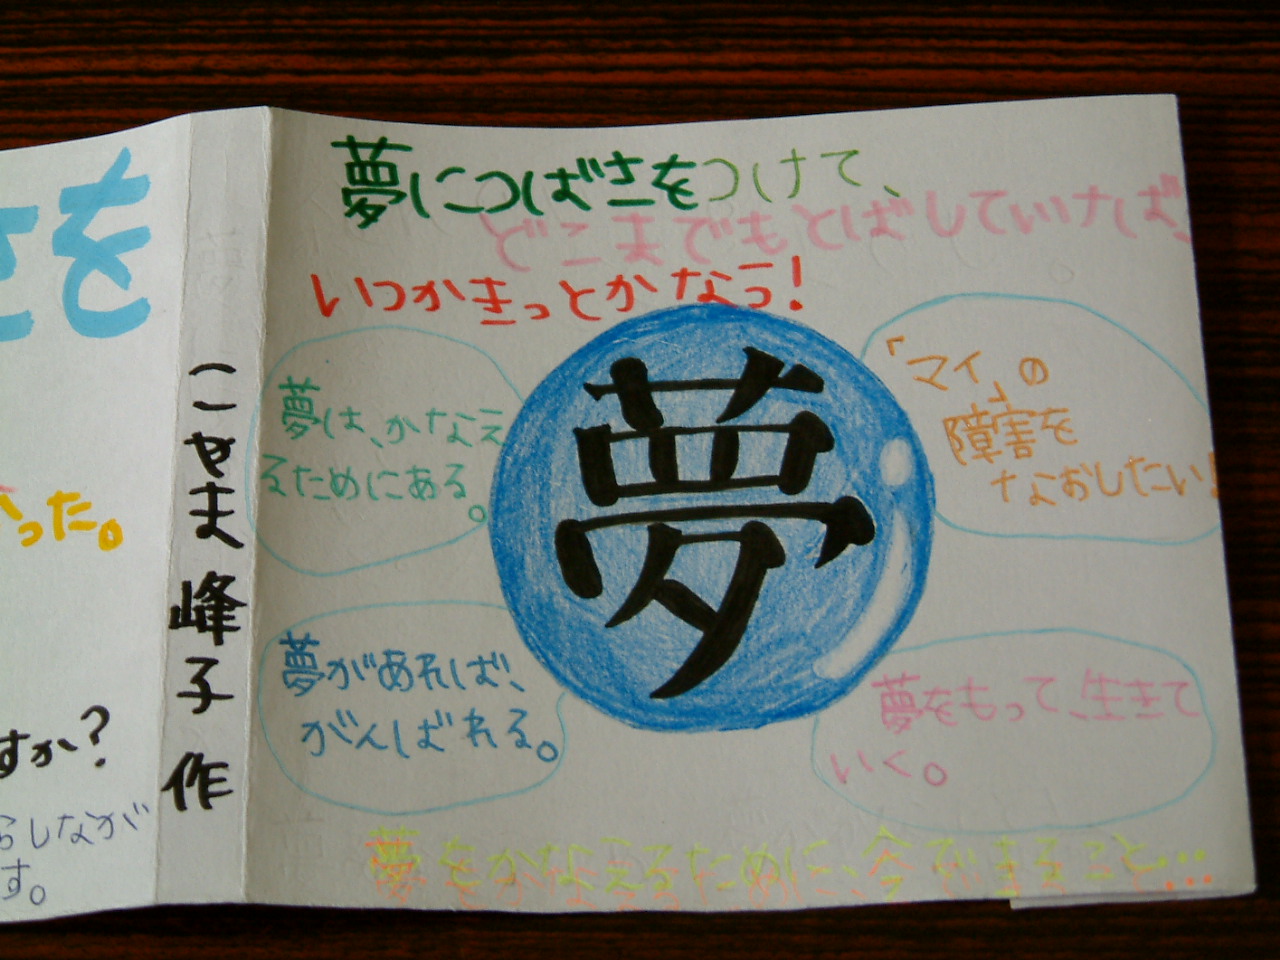 夢につばさをつけて、
どこまでもとばしていけば、
いつかきっとかなう!
夢
夢は、かなえ
るためにある
。
「マイ」の
障害を
なおしたい!
夢があれば、
がんばれる。
夢をもって、生きて
いく。
夢をかなえるために、今できること…
こやま峰子 作
さを
った。
すか?
らしなが
す。